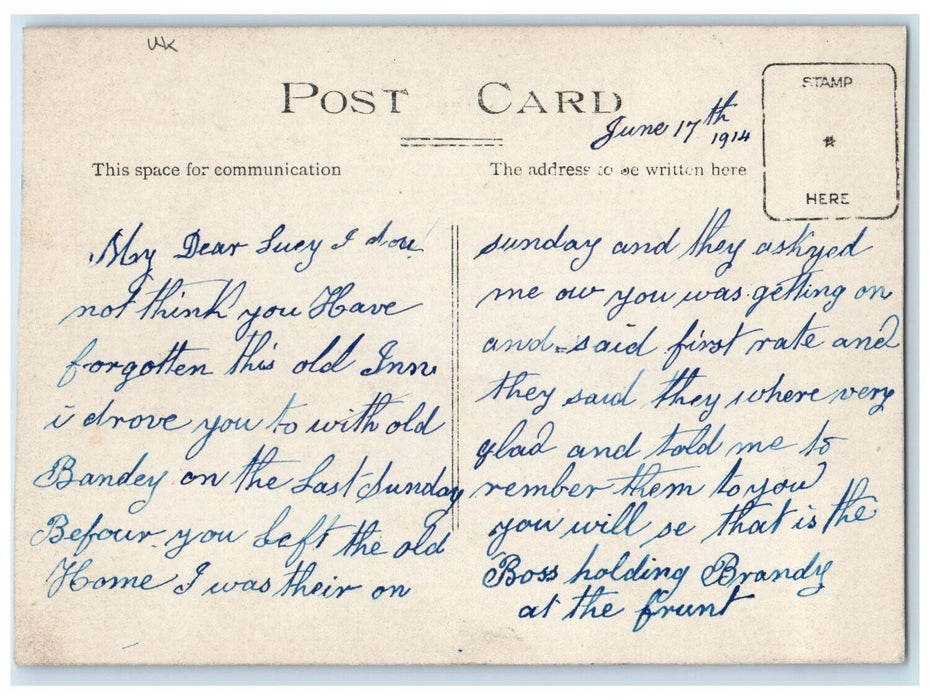 UK
POST CARD
June 17th
1914
STAMP
HERE
This space for communication
The address to be written here
My Dear Lucy I do
not think you Have
forgotten this old Inn
i drove you to with old
Bandey on the Last Sunday
Befour you Left the old
Home I was their on
sunday and they askyed
me ow you was getting on
and said first rate and
they said they where very
glad and told me to
rember them to you
you will se that is the
Boss holding Brandy
at the frunt